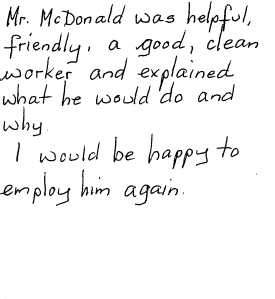 Mr. McDonald was helpful,
friendly, a good, clean
worker and explained
what he would do and
why.
I would be happy to
employ him again.